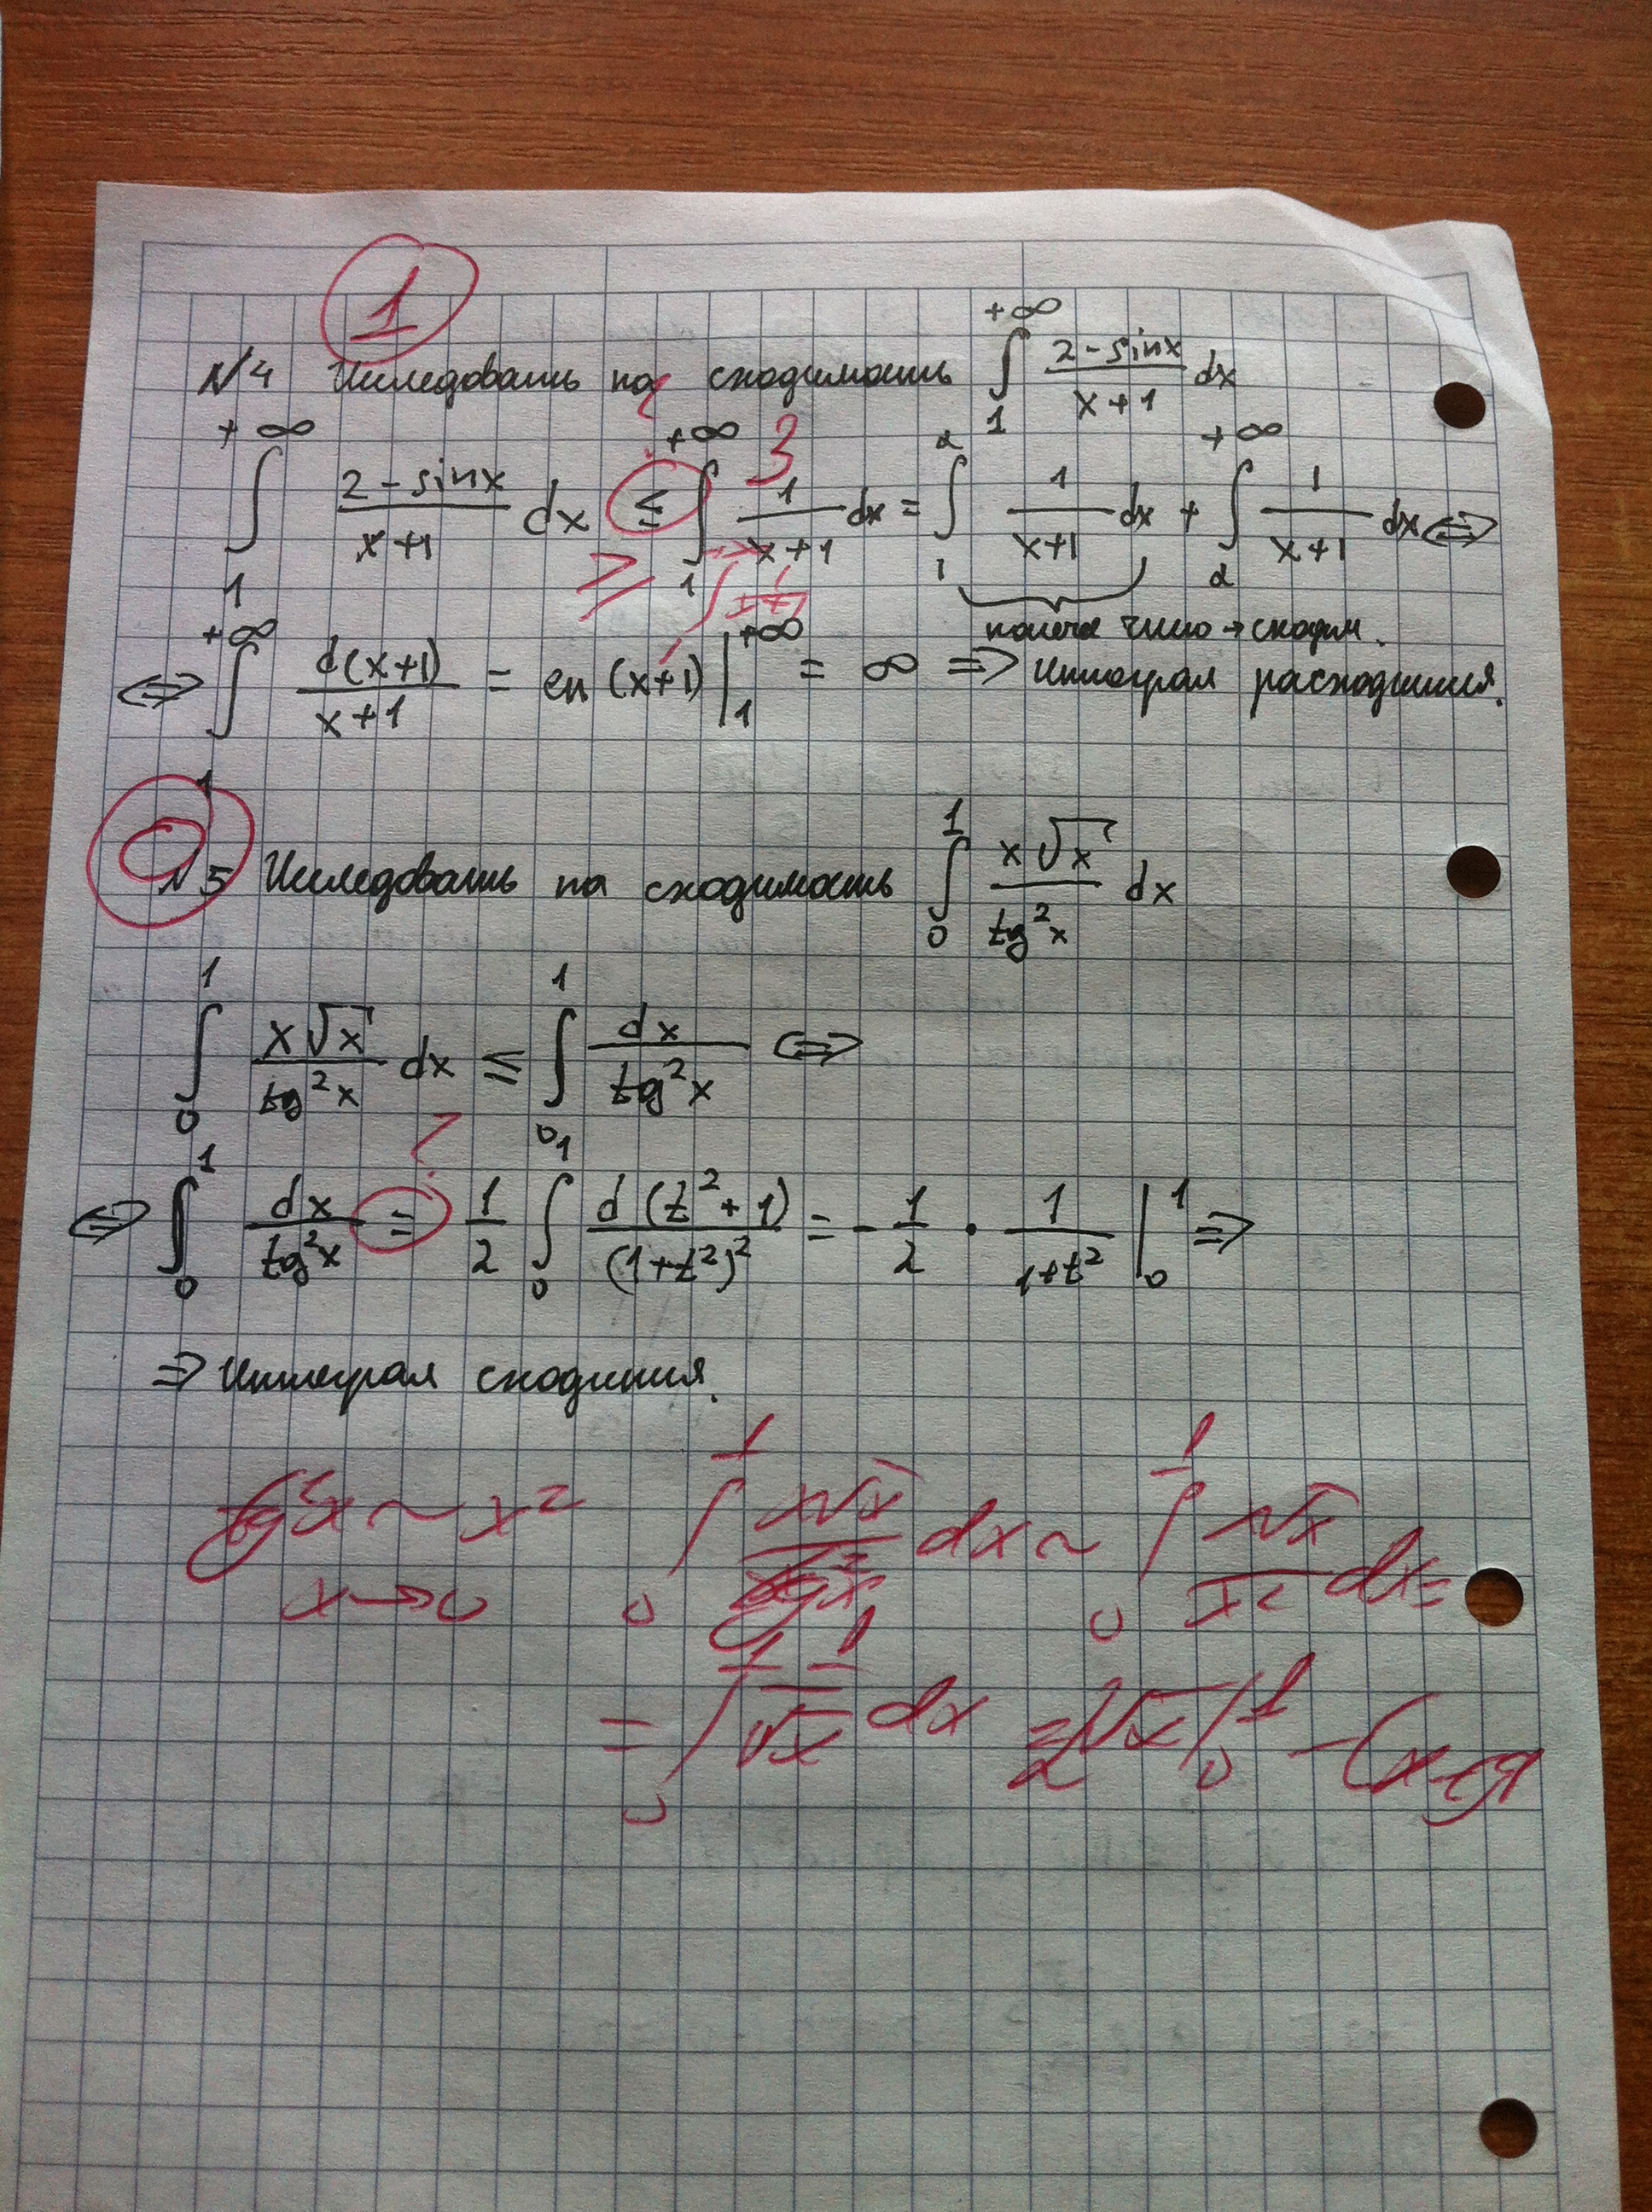 1
N4 Исследовать на сходимость ∫₁^{+∞} (2-sinx)/(x+1) dx
∫₁^{+∞} (2-sinx)/(x+1) dx ≤ ∫₁^{+∞} 1/(x+1) dx = ∫₁^{α} 1/(x+1) dx + ∫_{α}^{+∞} 1/(x+1) dx ⇔
? 3 ≥ ∫ 1
конечное число → сходит.
⇔ ∫₁^{+∞} d(x+1)/(x+1) = ln(x+1) |₁^{+∞} = ∞ ⇒ Интеграл расходится.
0
N5 Исследовать на сходимость ∫₀¹ x√x/tg²x dx
∫₀¹ x√x/tg²x dx ≤ ∫₀¹ dx/tg²x ⇔
?
⇔ ∫₀¹ dx/tg²x = 1/2 ∫₀¹ d(t²+1)/(1+t²)² = -1/2 · 1/(1+t²) |₀¹ ⇒
⇒ Интеграл сходится.
tg²x ~ x² ∫₀¹ x√x/tg²x dx ~ ∫₀¹ x√x/x² dx =
x→0
= ∫₀¹ 1/√x dx = 2√x |₀¹ - сх-ся